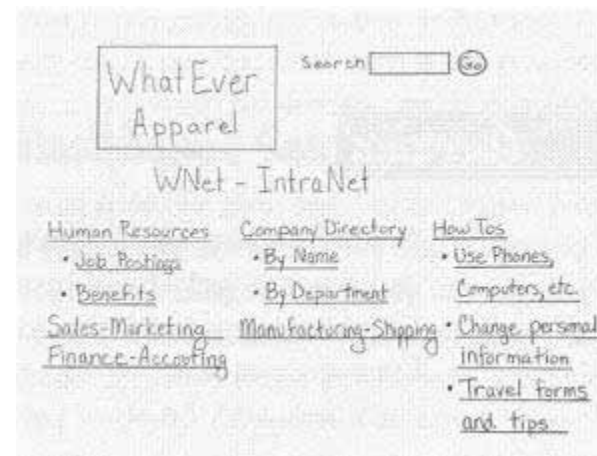 WhatEver
Apparel
Search
Go
WNet - IntraNet
Human Resources
• Job Postings
• Benefits
Sales-Marketing
Finance-Accouting
Company Directory
• By Name
• By Department
Manufacturing-Shpping
How Tos
• Use Phones,
Computers, etc.
• Change personal
information
• Travel forms
and tips